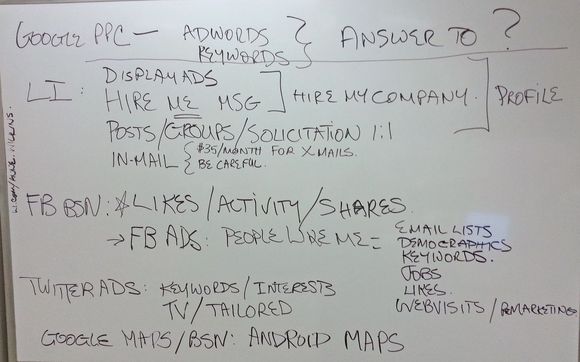 GOOGLE PPC — ADWORDS KEYWORDS } ANSWER TO ?
LI: DISPLAY ADS
HIRE ME MSG ] HIRE MY COMPANY. ] PROFILE
POSTS/GROUPS/SOLICITATION 1:1
IN-MAIL { $35/MONTH FOR X MAILS.
BE CAREFUL.
FB BSN: * LIKES/ACTIVITY/SHARES.
→ FB ADS: PEOPLE LIKE ME =
EMAIL LISTS
DEMOGRAPHICS
KEYWORDS.
JOBS
LIKES.
WEBVISITS/REMARKETING
TWITTER ADS: KEYWORDS/INTERESTS
TV/TAILORED
GOOGLE MAPS/BSN: ANDROID MAPS